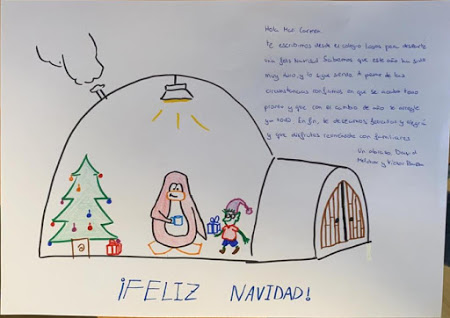 Hola Mari Carmen
Te escribimos desde el colegio para desearte
una feliz Navidad. Sabemos que este año ha sido
muy duro, y lo sigue siendo. A pesar de las
circunstancias confiamos en que se acabe todo
pronto y que con el cambio de año se arregle
ya todo. En fin, te deseamos felicidad y alegría
y que disfrutes conectada con familiares
Un abrazo, David
Melchor y
¡FELIZ NAVIDAD!